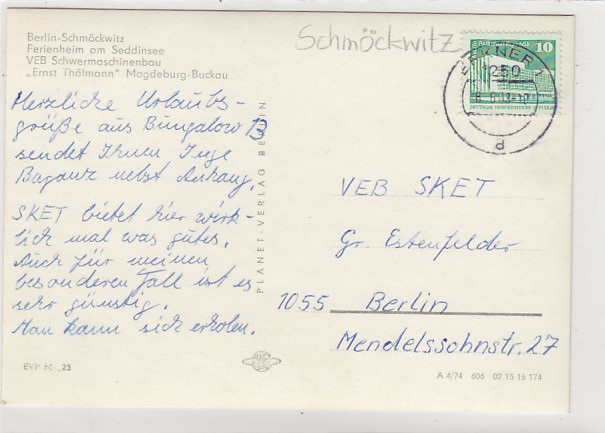 Berlin-Schmöckwitz
Ferienheim am Seddinsee
VEB Schwermaschinenbau
„Ernst Thälmann" Magdeburg-Buckau
Schmöckwitz
10
ERKNER 1
1250
d
Herzliche Urlaubs-
grüße aus Bungalow 13
sendet Ihnen Inge
Baganz nebst Anhang.
SKET bietet hier wirk-
lich mal was gutes.
Auch für meinen
besonderen Fall ist es
sehr günstig.
Man kann sich erholen.
PLANET-VERLAG BERLIN
VEB SKET
Gr. Estenfelder
1055 Berlin
Mendelssohnstr. 27
EVP M -,25
A 4/74 606 02 15 16 174